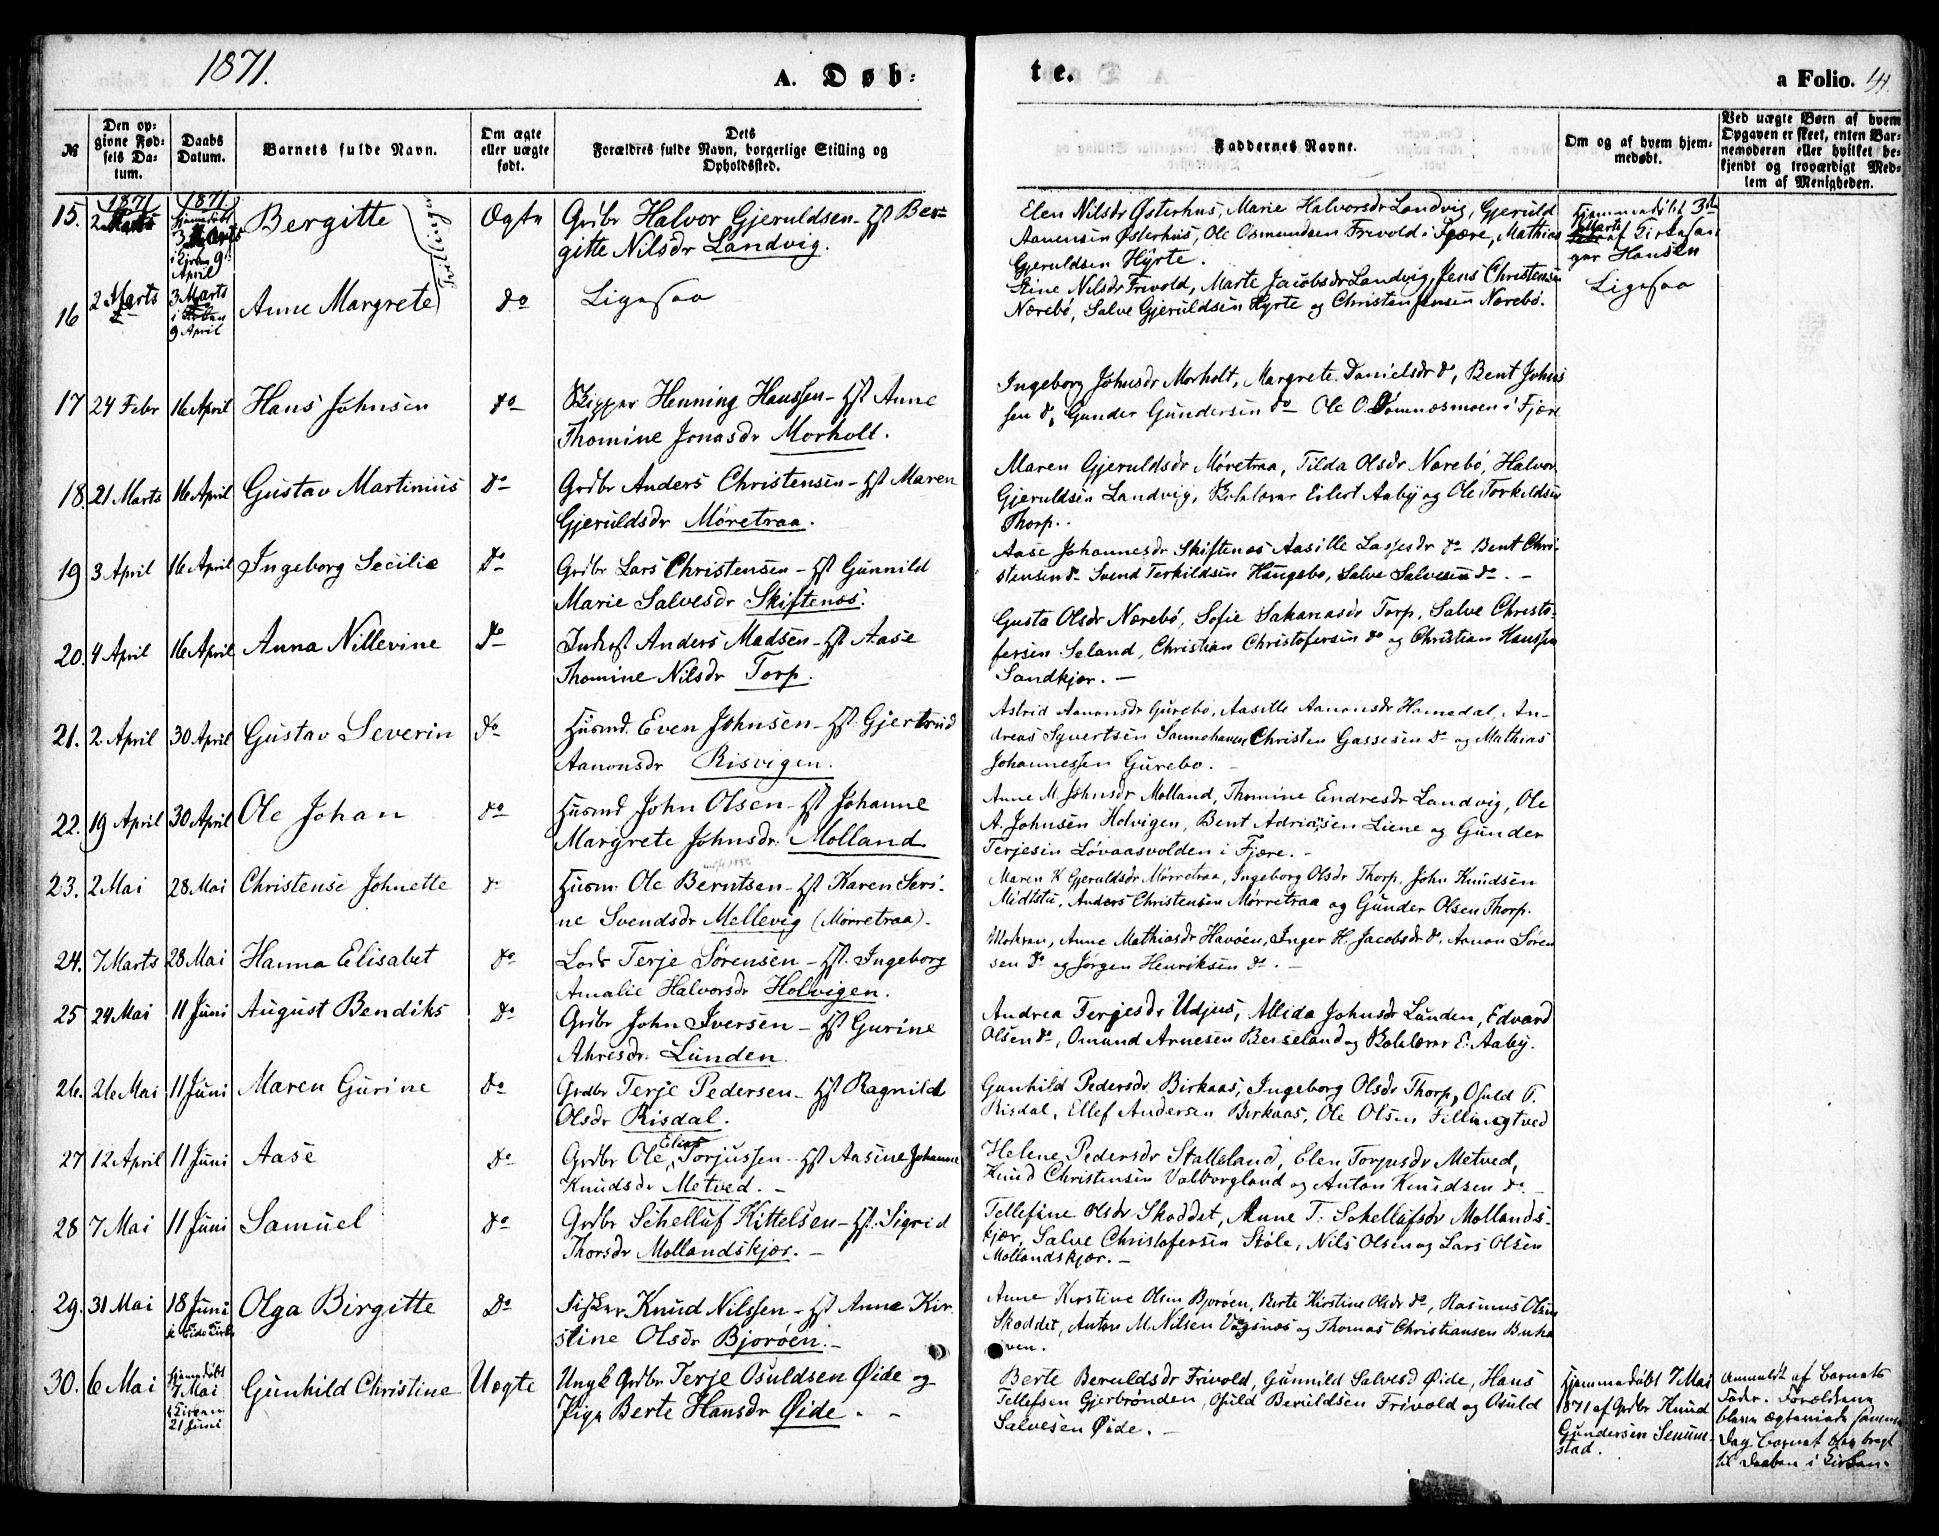 1871.
A. Døb-
№
Den op-
givne Fød-
sels Da-
tum.
Daabs
Datum.
Barnets fulde Navn.
Om ægte
eller uægte
født.
Dets
Forældres fulde Navn, borgerlige Stilling og
Opholdssted.
15. 1871 2 Marts 1871 hjemmedøbt 3 Marts i Kirken 9 April Bergitte Tvillinger Ægte Grdbr Halvor Gjeruldsen - Hst Ber-
gitte Nilsdr Landvig.
16 2 Marts 3 Marts i Kirken 9 April Anne Margrete do Ligesaa
17 24 Febr 16 April Hans Johnsen do Skipper Henning Hanssen - Hst Anne
Thomine Jonasdr Morholt.
18. 21 Marts 16 April Gustav Martinius do Grdbr Anders Christensen - Hst Maren
Gjeruldsdr Møretraa.
19 3 April 16 April Ingeborg Secilie do Grdbr Lars Christensen - Hst Gunnild
Marie Salvesdr Skiftenæs.
20. 4 April 16 April Anna Nillevine do Inderst Anders Madsen - Hst Aase
Thomine Nilsdr Torp.
21. 2 April 30 April Gustav Severin do Husmd. Even Johnsen - Hst. Gjertrud
Aanonsdr Risvigen.
22. 19 April 30 April Ole Johan do Husmd John Olsen - Hst Johanne
Margrete Johnsdr. Molland
23. 2 Mai 28 Mai Christense Johnette do Husm. Ole Berntsen - Hst Karen Seri-
ne Svendsdr Mellevig (Mørretraa).
24. 7 Marts 28 Mai Hanna Elisabet do Lods Terje Sørensen - Hst. Ingeborg
Amalie Halvorsdr Holvigen.
25 24 Mai 11 Juni August Bendiks do Grdbr John Iversen - Hst Gurine
Ahresdr. Lunden.
26. 26 Mai 11 Juni Maren Gurine do Grdbr Terje Pedersen - Hst Ragnild
Olsdr Risdal.
27 12 April 11 Juni Aase do Grdbr Ole Elias Torjussen - Hst Aasine Johanne
Knudsdr Metved. -
28 7 Mai 11 Juni Samuel do Grdbr Schelluf Kittelsen - Hst. Sigrid
Thorsdr Mollandskjær. -
29. 31 Mai 18 Juni i Eide Kirke Olga Birgitte do Fisker Knud Nilssen - Hst Anne Kir-
stine Olsdr Bjorøen. -
30. 6 Mai hjemmedøbt 7 Mai i Kirken 21 Juni Gunhild Christine Uægte Ungk Grdbr Terje Osuldsen Øide og
Pige Berte Hansdr Øide. -
te.
a Folio. 4.
Faddernes Navne.
Om og af hvem hjem-
medøbt.
Ved uægte Børn af hvem
Opgaven er skeet, enten Bar-
nemoderen eller hvilket be-
kjendt og troværdigt Med-
lem af Menigheden.
Elen Nilsdr Østerhus, Marie Halvorsdr Landvig, Gjeruld
Aanensen Østerhus, Ole Osmundsen Frivold i Fjære, Mathias
Gjeruldsen Hyrte.
Hjemmedøbt 3die
Marts af Kirkesan
ger Hansen
Stine Nilsdr Frivold, Marte Jacobsdr Landvig, Jens Christensen
Nærebø, Salve Gjeruldsen Hyrte og Christen Jensen Nærebø.
Ligesaa
Ingeborg Johnsdr Morholt, Margrete Danielsdr do, Bent Johns
sen do, Gunder Gundersen do Ole O. Dømnæsmoen i Fjære
Maren Gjeruldsdr Møretraa, Tilda Olsdr Nærebø, Halvor
Gjeruldsen Landvig, Skolelærer Eilert Aaby og Ole Torkildsen
Thorp.
Aase Johannesdr Skiftenæs Aasille Lassesdr do Bent Chri-
stensen do Svend Terkildsen Haugebo, Salve Salvesen do. -
Gusta Olsdr Nærebø, Sofie Sakariasdr Torp, Salve Christo-
fersen Seland, Christian Christofersen do og Christian Hanssen
Sandkjær. -
Astrid Aanonsdr Gurebo, Aasille Aanonsdr Homedal, An-
dreas Syvertsen Sannehaven, Christen Gassesen do og Mathias
Johannessen Gurebo. -
Anne M Johnsdr Molland, Thomine Endresdr Landvig, Ole
A. Johnsen Holvigen, Bent Adriasen Liene og Gunder
Terjesen Løvaasvolden i Fjære. -
Maren K Gjeruldsdr Mørretraa, Ingeborg Olsdr Thorp, John Knudsen
Midtstu, Anders Christensen Mørretraa og Gunder Olsen Thorp.
Modren, Anne Mathiasdr Havøen, Inger H. Jacobsdr do. Aanon Søren
sen do og Jørgen Henriksen do. -
Andrea Terjesdr Udjus, Allida Johnsdr Lunden, Edvard
Olsen do, Omund Arnesen Berseland og Skolelærer E. Aaby.
Gunhild Pedersdr Birkaas, Ingeborg Olsdr Thorp, Osuld T.
Risdal, Ellef Andersen Birkaas, Ole Olsen Fillingtved
Helene Pedersdr Stalleland, Elen Torjusdr Metved,
Knud Christensen Valborgland og Anton Knudsen do. -
Tellefine Olsdr Skoddet, Anne T. Schellufsdr Mollands-
kjær, Salve Christofersen Støle, Nils Olsen og Lars Olsen
Mollandskjær. -
Anne Kirstine Olsen Bjorøen, Berte Kirstine Olsdr do, Rasmus Olsen
Skoddet, Anton M. Nilsen Vågsnes og Thomas Christiansen Buha
ven.
Berte Beruldsdr Frivold, Gunnild Salvesd Øide, Hans
Tellefsen Gjerbrønden, Osuld Beruldsen Frivold og Osuld
Salvesen Øide. -
Hjemmedøbt 7 Mai
1871 af Grdbr Knud
Gundersen Senum-
stad.
Anmeldt af Barnets
Fader. Forældrene
bleve ægteviede samme
Dag Barnet blev bragt
til Daaben i Kirken.